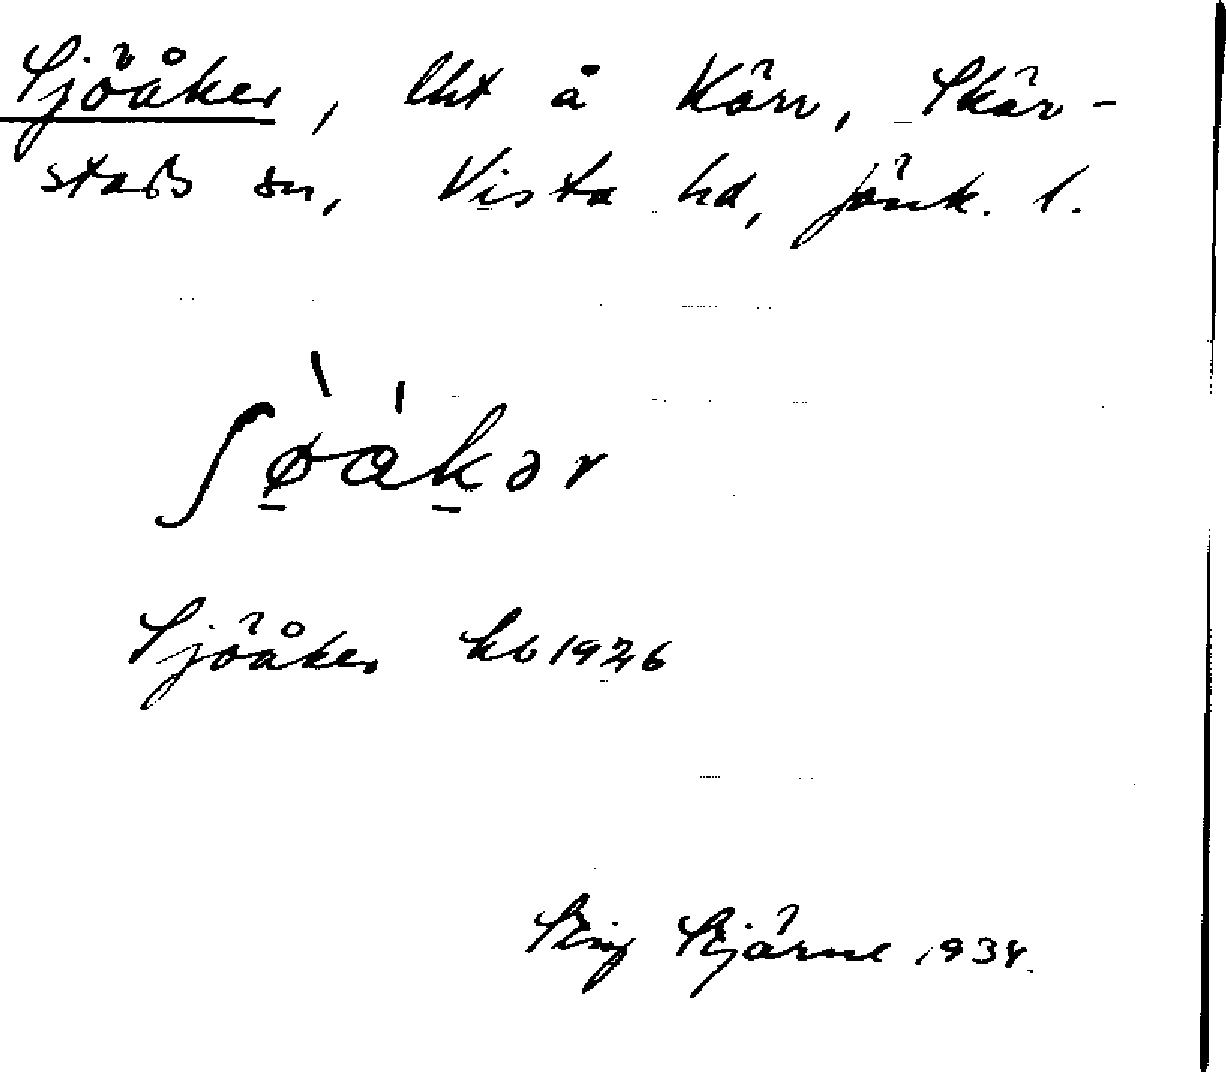 Sjöåker, lht å Kärr, Skär-
stads sn, Vista hd, Jönk. l.
ʃø̠̀ák̠ər
Sjöåker kb 1926
Stig Stjärne 1934.